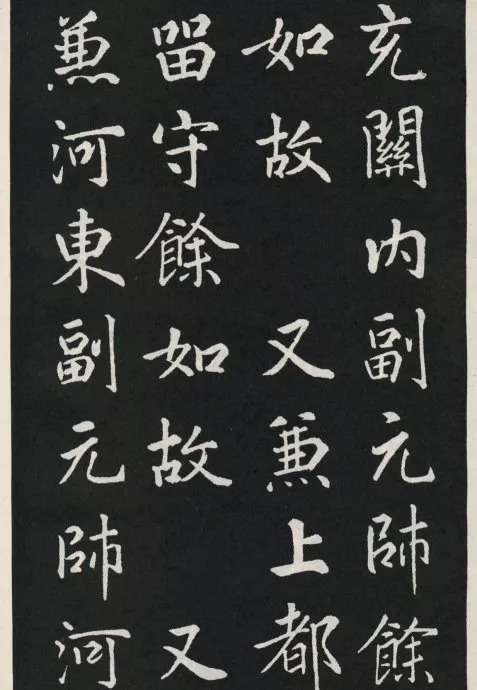 充關內副元帥餘
如故 又兼上都
留守餘如故 又
兼河東副元帥 河